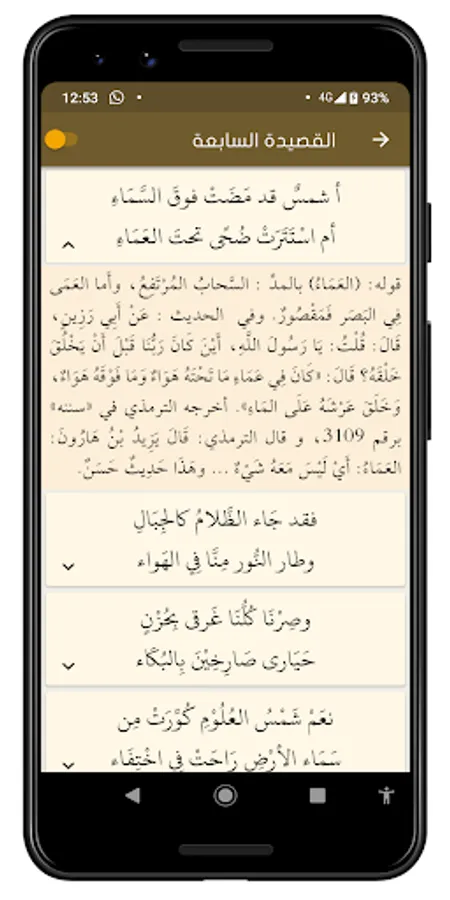 12:53
4G 93%
القصيدة السابعة
أ شمسٌ قد مَضَتْ فوقَ السَّمَاءِ
أم اسْتَتَرَتْ ضُحًى تحتَ العَمَاءِ
قوله: (العَمَاءُ) بالمدّ : السَّحابُ المُرْتَفِعُ، وأما العَمَى
فِي البَصَر فَمَقْصُورٌ. وفي الحديث : عَنْ أَبِي رَزِينٍ،
قَالَ: قُلْتُ: يَا رَسُولَ اللَّهِ، أَيْنَ كَانَ رَبُّنَا قَبْلَ أَنْ يَخْلُقَ
خَلْقَهُ؟ قَالَ: «كَانَ فِي عَمَاءٍ مَا تَحْتَهُ هَوَاءٌ وَمَا فَوْقَهُ هَوَاءٌ،
وَخَلَقَ عَرْشَهُ عَلَى المَاءِ». أخرجه الترمذي في «سننه»
برقم 3109، و قال الترمذي: قَالَ يَزِيدُ بْنُ هَارُونَ:
العَمَاءُ: أَيْ لَيْسَ مَعَهُ شَيْءٌ ... وهَذَا حَدِيثٌ حَسَنٌ.
فقد جَاء الظَّلامُ كالجِبَالِ
وطار النُّور مِنَّا فِي الهَواء
وصِرْنَا كُلُّنَا غَرقى بِحُزْنٍ
حَيَارى صَارِخِيْنَ بِالبُكَاء
نعَمْ شَمْسُ العُلُوْمِ كُوِّرَتْ مِن
سَمَاء الأرْضِ رَاحَتْ فِي اخْتِفَاء